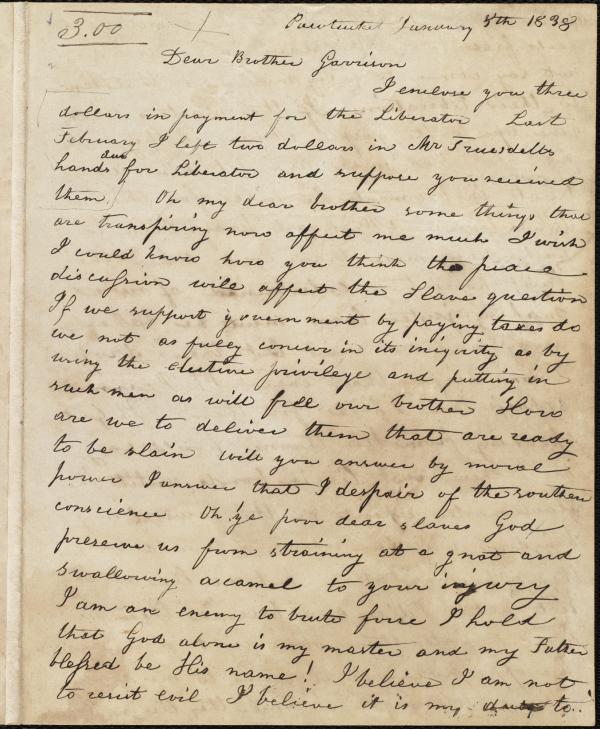 3.00
Pawtucket January 5th 1838
Dear Brother Garrison
I enclose you three
dollars in payment for the Liberator Last
February I left two dollars in Mr Truesdells
hands due for Liberator and suppose you received
them. Oh my dear brother some things that
are transpiring now affect me much I wish
I could know how you think the peace
discussion will affect the Slave question
If we support government by paying taxes do
we not as fully concur in its iniquity as by
using the elective privilege and putting in
such men as will free our brother How
are we to deliver them that are ready
to be slain will you answer by moral
power I answer that I despair of the southern
conscience Oh ye poor dear slaves God
preserve us from straining at a gnat and
swallowing a camel to your injury
I am an enemy to brute force I hold
that God alone is my master and my Father
blessed be His name! I believe I am not
to resist evil I believe it is my duty to